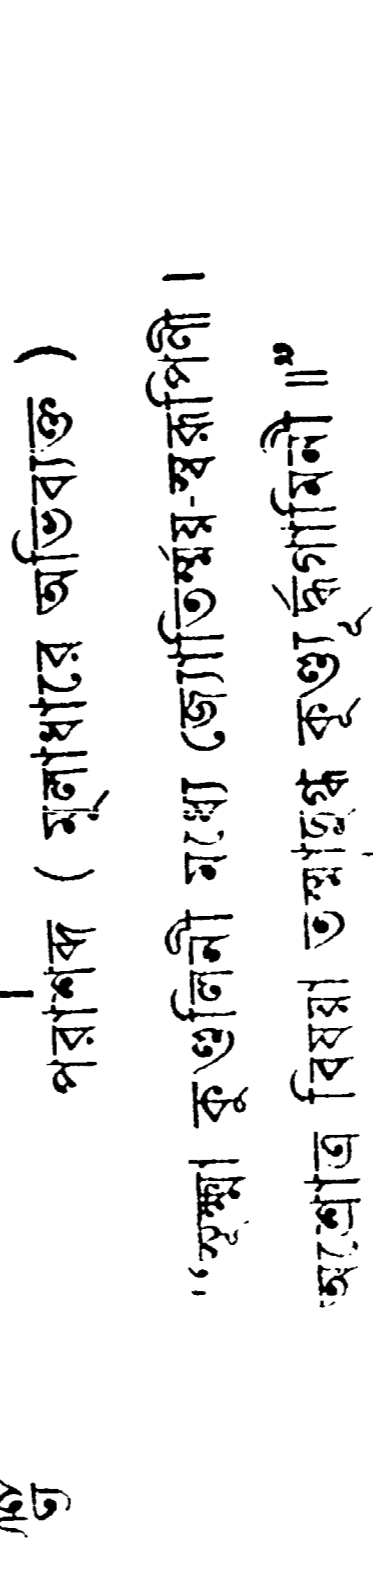 পরাশব্দ ( মূলাধারে অভিব্যক্ত )
“সূক্ষ্মা কুণ্ডলিনী মধ্যে জ্যোতির্ম্ময়-স্বরূপিণী ।
অশ্রোত্র বিষয়া তস্মাদুদ্ধ কুণ্ডুর্দ্ধগামিনী ॥”